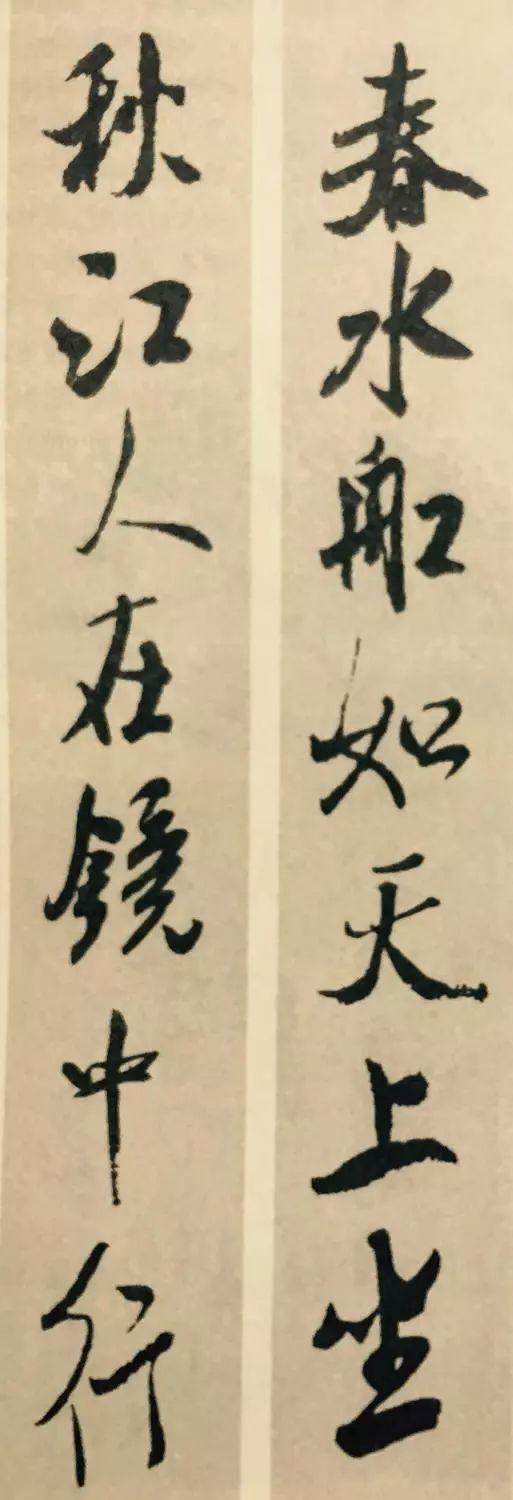 春水船如天上坐
秋江人在镜中行